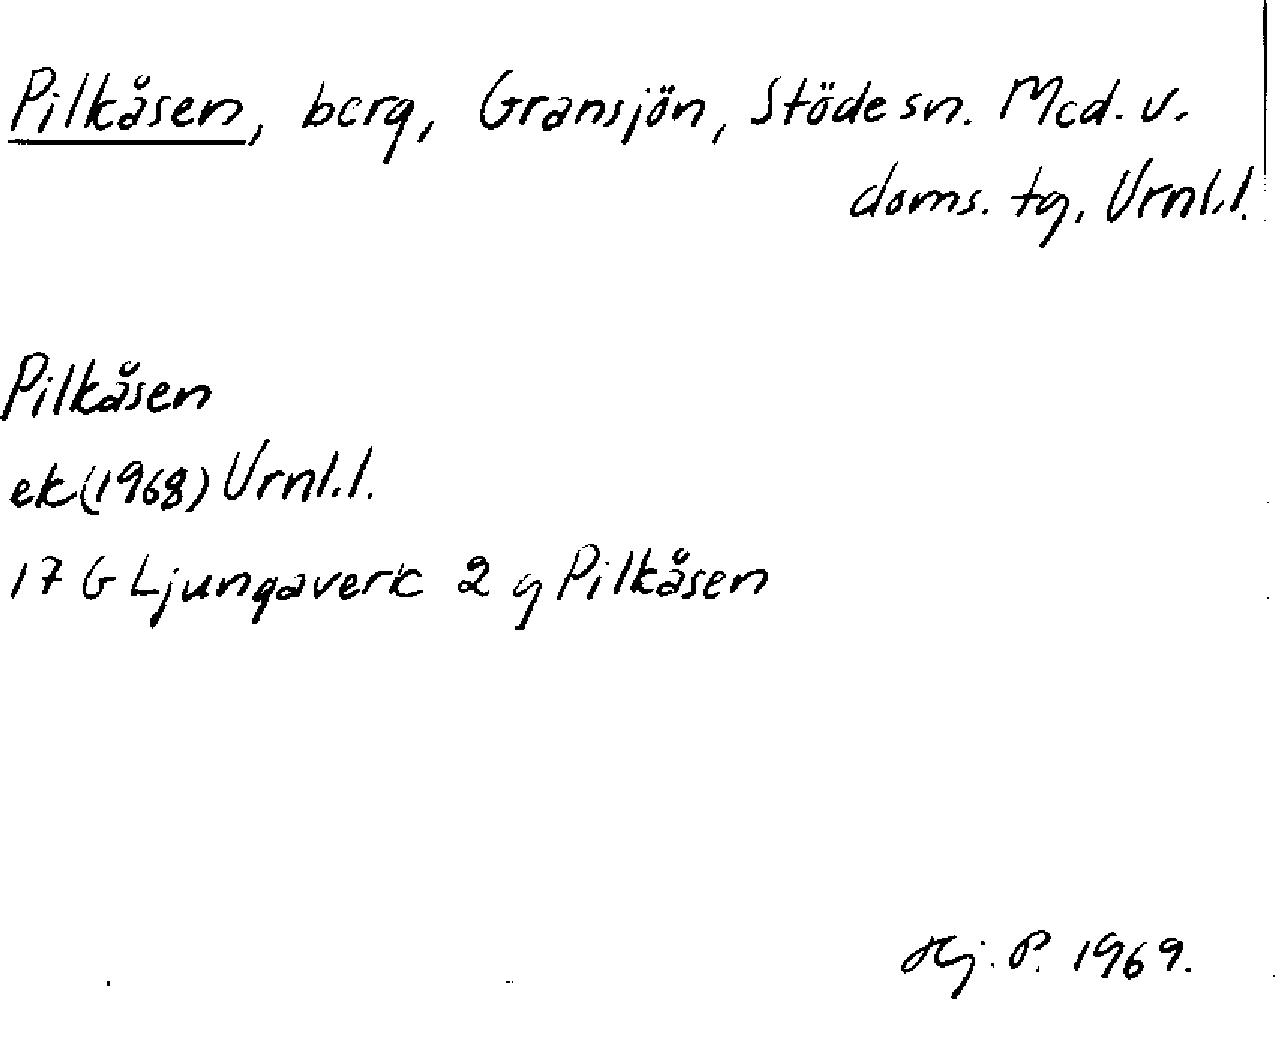 Pilkåsen, berg, Gransjön, Stöde sn. Med. v.
doms. tg, Vrnl.l.
Pilkåsen
ek(1968) Vrnl.l.
17 G Ljungaverk 2 g Pilkåsen
Hj. P. 1969.